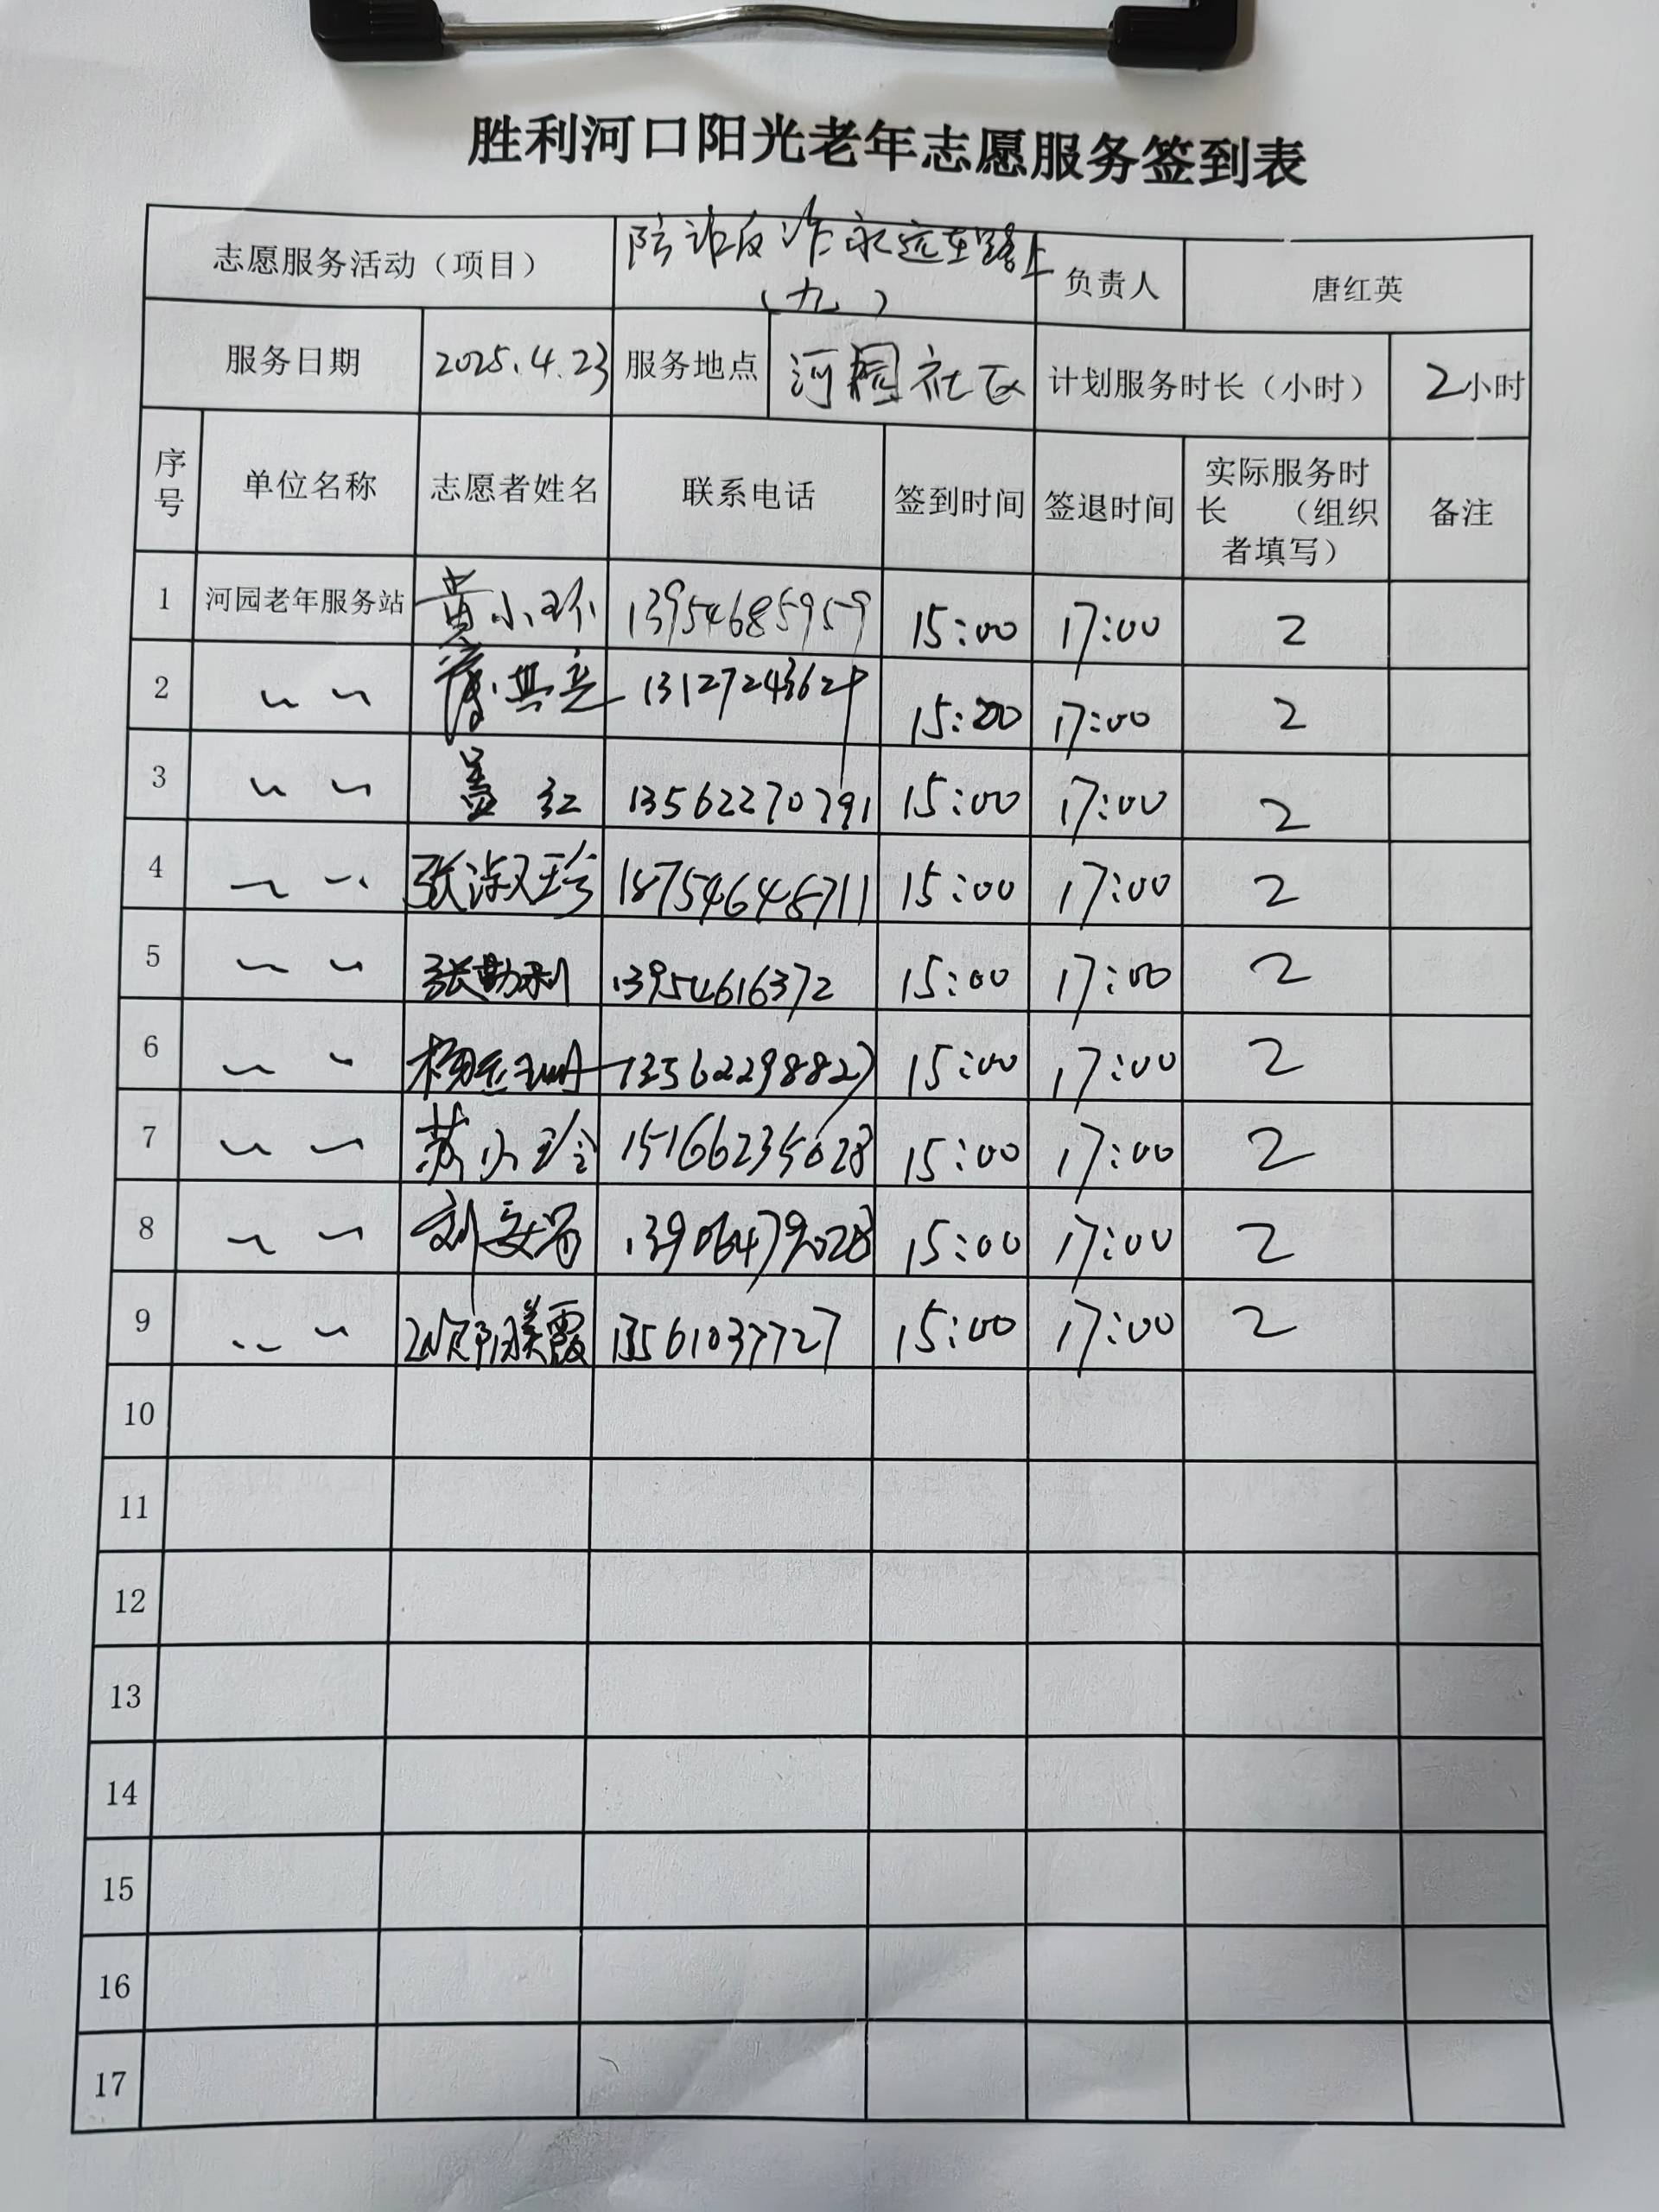 胜利河口阳光老年志愿服务签到表
志愿服务活动（项目） 防诈反诈永远在路上 负责人 唐红英
（九）
服务日期 2025.4.23 服务地点 河园社区 计划服务时长（小时） 2小时
序号 单位名称 志愿者姓名 联系电话 签到时间 签退时间 实际服务时长 （组织者填写） 备注
1 河园老年服务站 黄小环 13954685959 15:00 17:00 2
2 〃 〃 1312724362 15:00 17:00 2
3 〃 〃 盖红 13562270791 15:00 17:00 2
4 〃 〃 张淑珍 18754646711 15:00 17:00 2
5 〃 〃 张勤利 13954616372 15:00 17:00 2
6 〃 〃 13562298827 15:00 17:00 2
7 〃 〃 苏小玲 15166235028 15:00 17:00 2
8 〃 〃 13906479028 15:00 17:00 2
9 〃 〃 13561037727 15:00 17:00 2
10
11
12
13
14
15
16
17